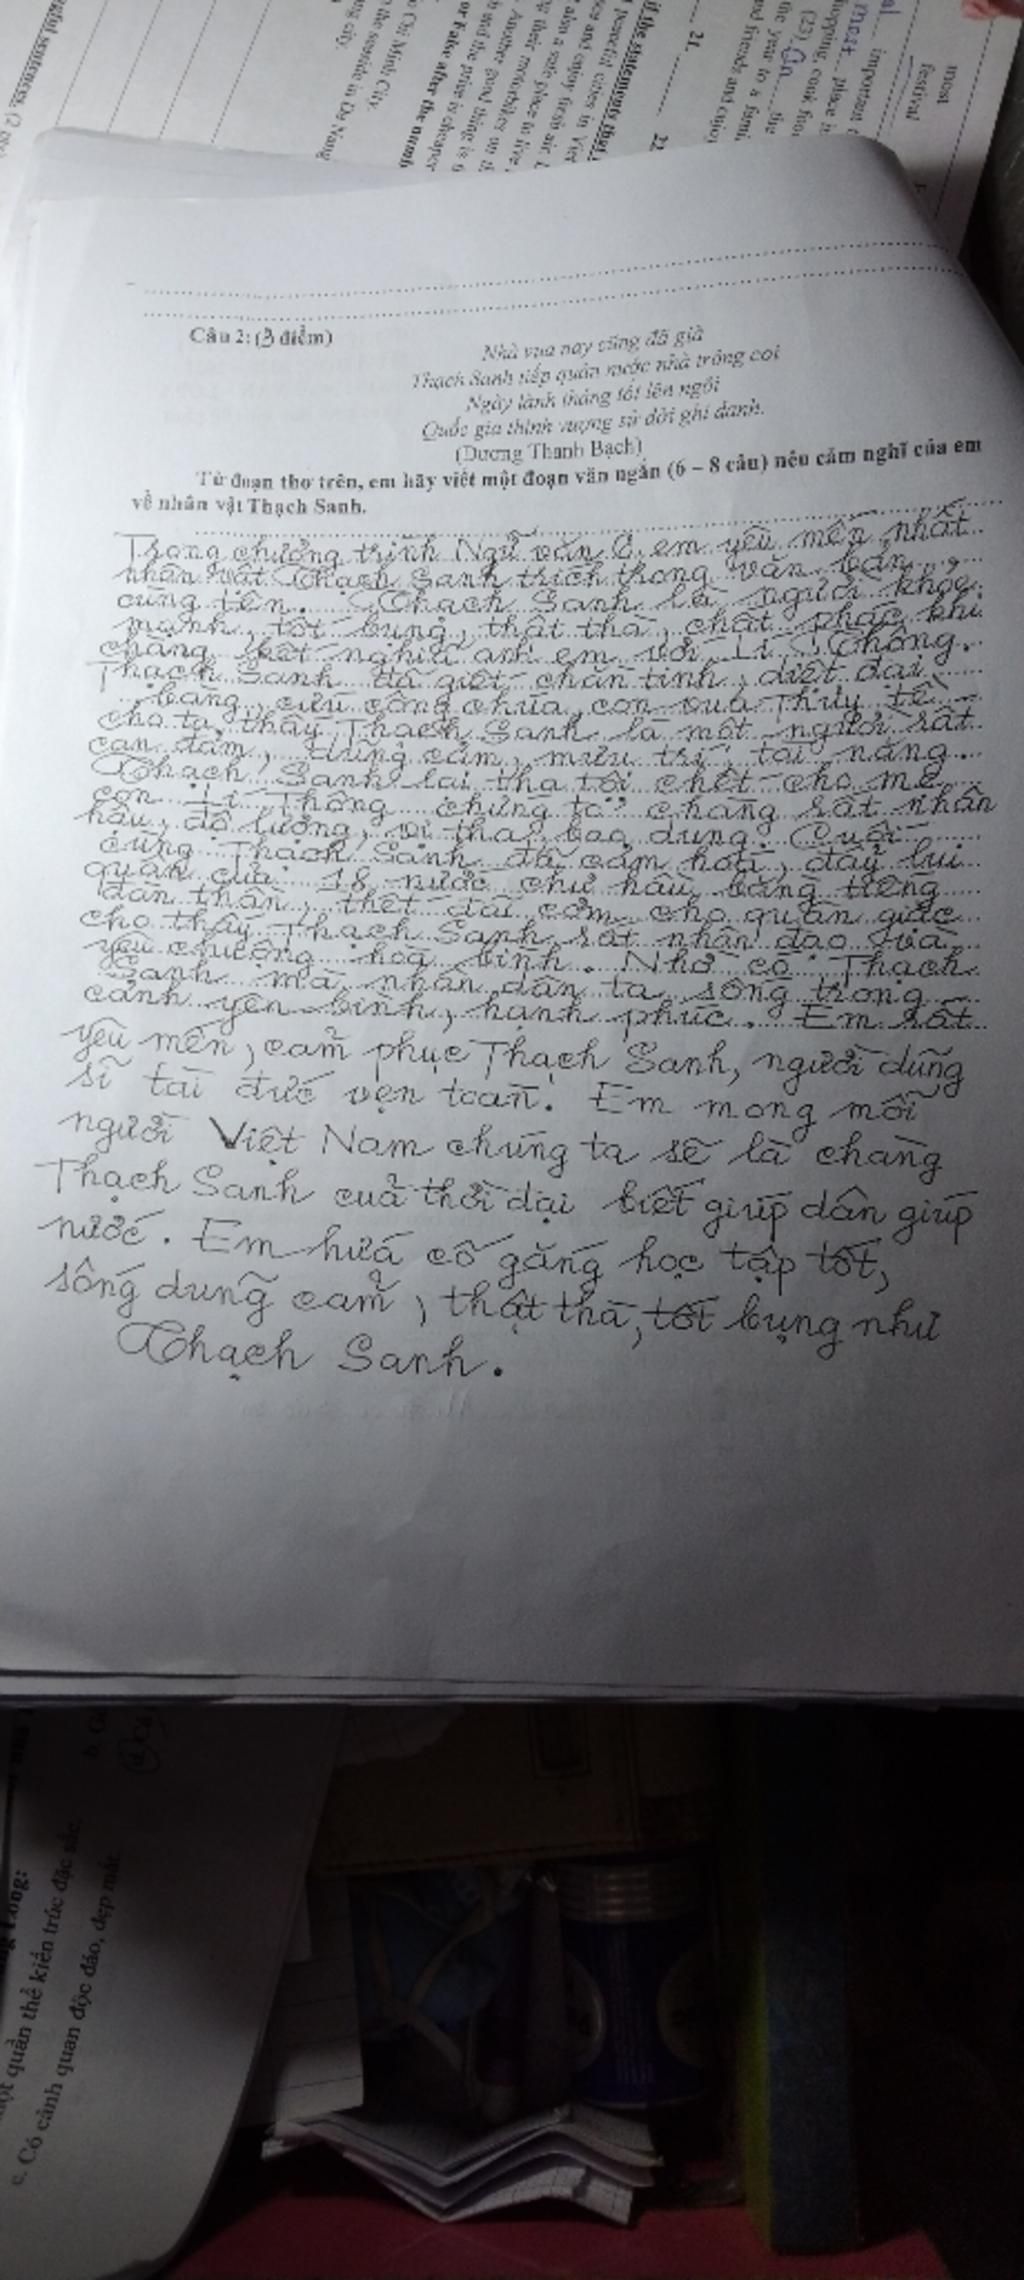 most
festival
important
most place
(23) On the
the year
and friends and enjoy
21.
22
or False after the numb
Câu 2: (3 điểm)
Nhà vua nay cũng đã già
Thạch Sanh tiếp quản nước nhà trông coi
Ngày lành tháng tốt lên ngôi
Quốc gia thịnh vượng sử đời ghi danh.
(Dương Thanh Bạch)
Từ đoạn thơ trên, em hãy viết một đoạn văn ngắn (6 – 8 câu) nêu cảm nghĩ của em
về nhân vật Thạch Sanh.
Trong chương trình Ngữ văn 6, em yêu mến nhất
nhân vật Thạch Sanh trích trong văn bản
cùng tên. Thạch Sanh là người khỏe
mạnh, tốt bụng, thật thà, chất phác khi
chàng kết nghĩa anh em với Lí Thông.
Thạch Sanh đã giết chăn tinh, diệt đại
bàng, cứu công chúa, con vua Thủy tề
cho ta thấy Thạch Sanh là một người rất
can đảm, dũng cảm, mưu trí, tài năng.
Thạch Sanh lại tha tội chết cho mẹ
con Lí Thông chứng tỏ chàng rất nhân
hậu, độ lượng, vị tha, bao dung. Cuối
cùng Thạch Sanh đã cảm hoá, đẩy lui
quân của 18 nước chư hầu bằng tiếng
đàn thần, thết đãi cơm cho quân giặc
cho thấy Thạch Sanh rất nhân đạo và
yêu chuộng hoà bình. Nhờ có Thạch
Sanh mà nhân dân ta sống trong
cảnh yên bình, hạnh phúc. Em rất
yêu mến, cảm phục Thạch Sanh, người dũng
sĩ tài đức vẹn toàn. Em mong mỗi
người Việt Nam chúng ta sẽ là chàng
Thạch Sanh của thời đại biết giúp dân giúp
nước. Em hứa cố gắng học tập tốt,
sống dũng cảm, thật thà, tốt bụng như
Thạch Sanh.
quần thể kiến trúc đặc sắc
c. Có cảnh quan độc đáo, đẹp mắt